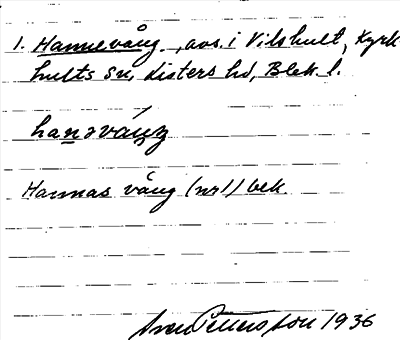 1. Hannevång, avs. i Vilshult, Kyrk
hults sn, Listers hd, Blek. l.
hanəváŋ
Hannas vång (nr 1) bek.
Sven Pettersson 1936